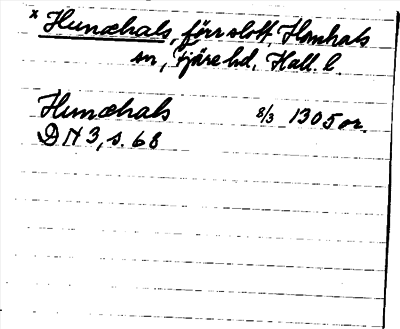 x Hunæhals, förr slott, Hanhals
sn, Fjäre hd, Hall. l.
Hunæhals 8/3 1305 or.
DN 3, s. 68